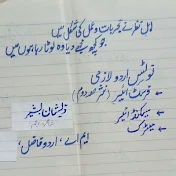 اہل نظر نے تجربات و عمل کی شکل میں
جو کچھ مجھے دیا وہ لوٹا رہا ہوں میں
نوٹس اردو لازمی
← فرسٹ ائیر (حصہ دوم)
← سیکنڈ ائیر
← میٹرک
ذیشان بشیر
ایم اے، اردو فاضل،